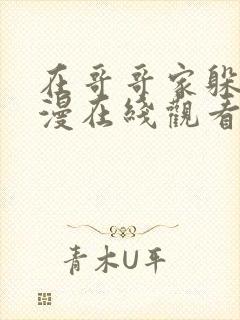 在哥哥家躲
漫在綫觀看
青木U平